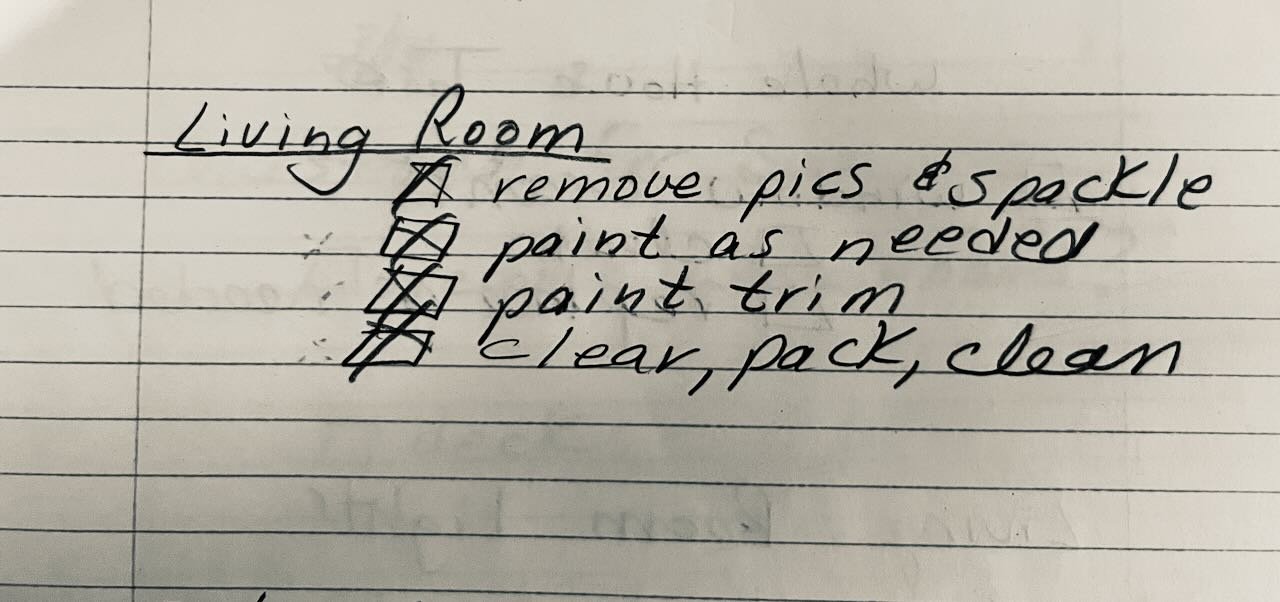 Living Room
remove pics & spackle
paint as needed
paint trim
clear, pack, clean